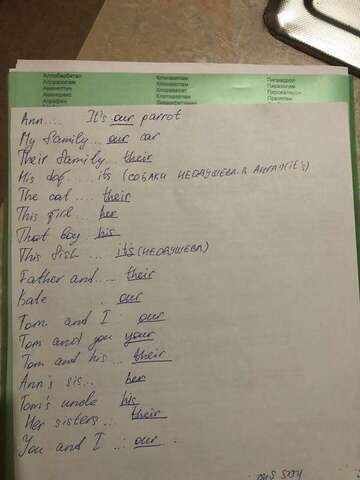 Аллобарбитал
Алпразолам
Аминептин
Аминорекс
Апрофен
Клоназепам
Клоразепам
Клоразепат
Клотиазепам
Пиградрол
Пиразолам
Пировалерон
Празепам
Ann.... It's our parrot
My family... our car
Their family... their
His dog.... its (собаки неодушевл. в английс)
The cat .... their
This girl... her
That boy his
This fish... its (неодушевл)
Father and.... their
Kate . our
Tom and I our
Tom and you your
Tom and his... their
Ann's sis... her
Tom's uncle his
Her sisters... their
You and I ... our